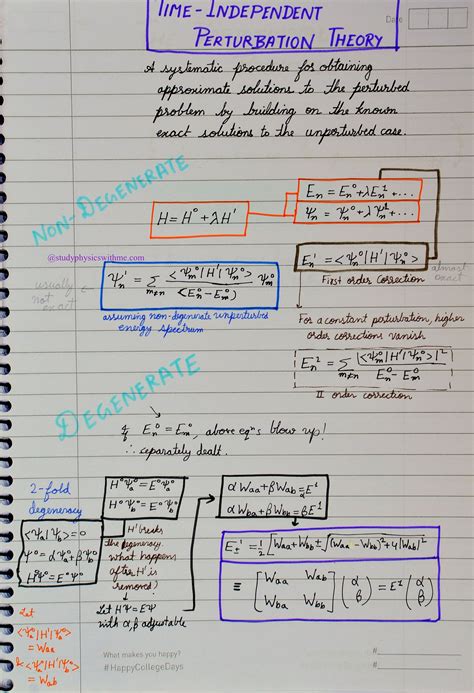 TIME-INDEPENDENT
PERTURBATION THEORY
Date
A systematic procedure for obtaining
approximate solutions to the perturbed
problem by building on the known
exact solutions to the unperturbed case.
NON-DEGENERATE
@studyphysicswithme.com
H = H⁰ + λH'
Eₙ = Eₙ⁰ + λEₙ¹ + ...
Ψₙ = Ψₙ⁰ + λΨₙ¹ + ...
Eₙ' = <Ψₙ⁰|H'|Ψₙ⁰>
First order correction
almost
exact
usually
not
exact
Ψₙ' = Σ_{m≠n} <Ψₘ⁰|H'|Ψₙ⁰> / <Eₙ⁰ - Eₘ⁰) Ψₘ⁰
assuming non-degenerate unperturbed
energy spectrum
For a constant perturbation, higher
order corrections vanish
Eₙ² = Σ_{m≠n} |<Ψₘ⁰|H'|Ψₙ⁰>|² / Eₙ⁰ - Eₘ⁰
II order correction
DEGENERATE
if Eₙ⁰ = Eₘ⁰, above eqⁿs blow up!
∴ separately dealt.
2-fold
degeneracy
<Ψₐ⁰|Ψ_b⁰> = 0
Ψ⁰ = αΨₐ⁰ + βΨ_b⁰
H⁰Ψ⁰ = E⁰Ψ⁰
H⁰Ψₐ⁰ = E⁰Ψₐ⁰
H⁰Ψ_b⁰ = E⁰Ψ_b⁰
H' breaks
the degeneracy
what happens
after H' is
removed?
Let HΨ = EΨ
with α, β adjustable
αWaa + βWab = αE¹
αWba + βWbb = βE¹
E±¹ = 1/2 [Waa + Wbb ± √(Waa - Wbb)² + 4|Wab|²
≡ [Waa Wab
Wba Wbb] (α β) = E¹ (α β)
Let
<Ψₐ⁰|H'|Ψₐ⁰>
= Waa
& <Ψₐ⁰|H'|Ψ_b⁰>
= Wab
What makes you happy?
#HappyCollegeDays
#
#